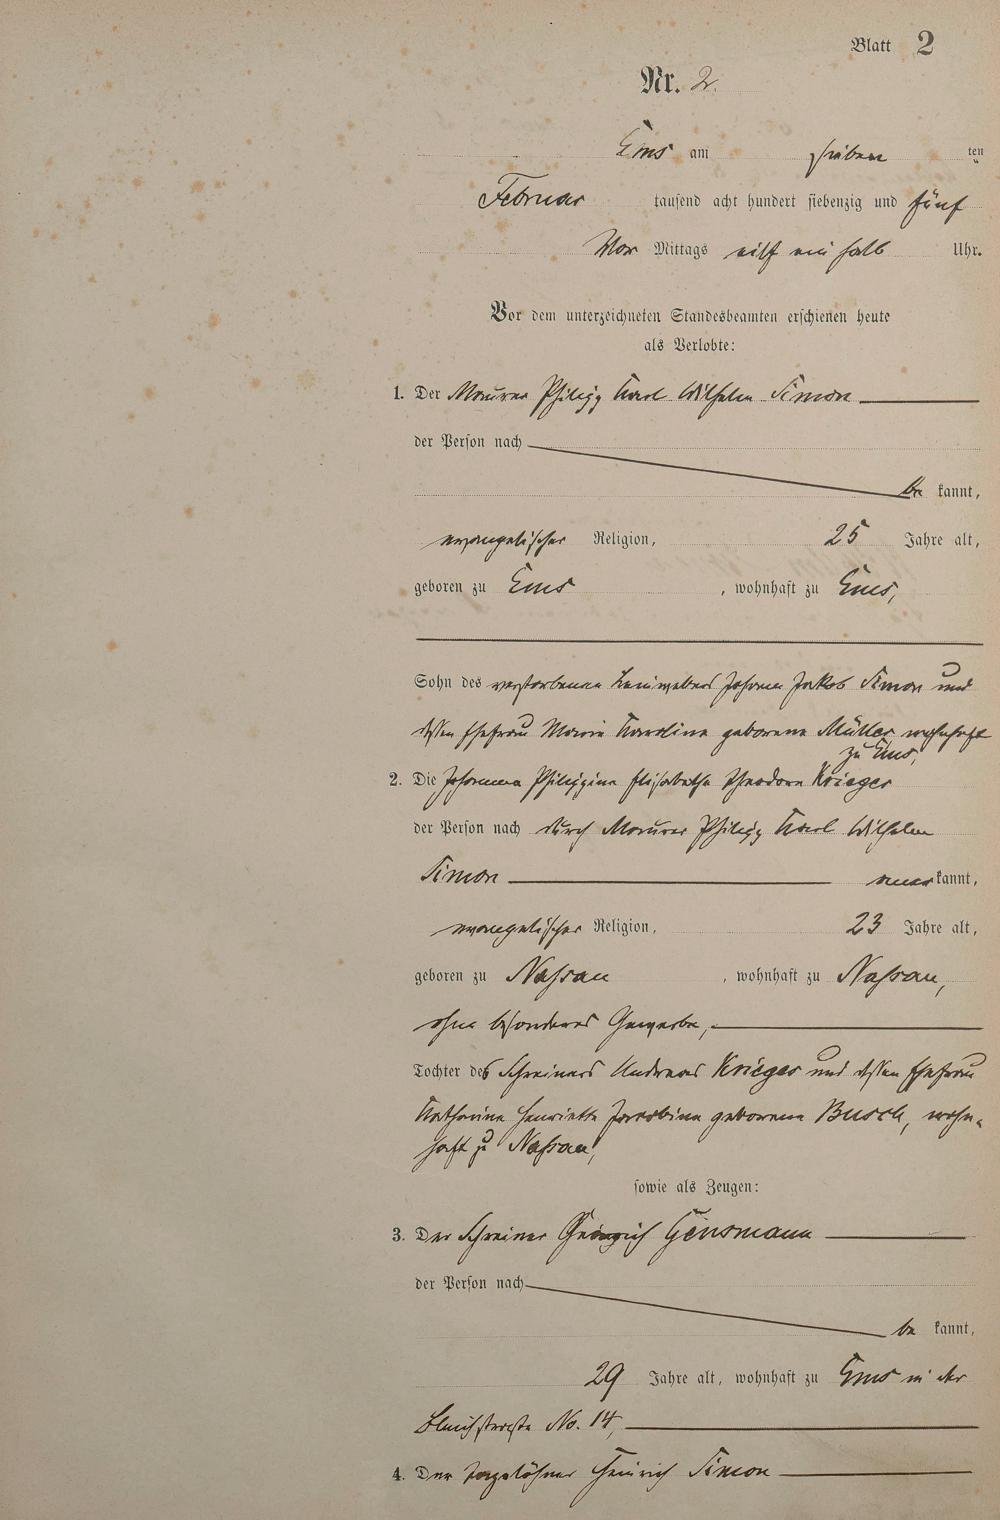 Blatt 2
Nr. 2.
Ems am sieben ten
Februar tausend acht hundert siebenzig und fünf
Vor Mittags eilf ein halb Uhr.
Vor dem unterzeichneten Standesbeamten erschienen heute
als Verlobte:
1. Der Maurer Philipp Karl Wilhelm Simon
der Person nach
be kannt,
evangelischer Religion, 25 Jahre alt,
geboren zu Ems, wohnhaft zu Ems,
Sohn des verstorbenen Leinwebers Johann Jakob Simon und
dessen Ehefrau Maria Karoline geborene Müller wohnhaft
zu Ems,
2. Die Johanna Philippine Elisabetha Theodore Krieger
der Person nach durch Maurer Philipp Karl Wilhelm
Simon aner kannt,
evangelischer Religion, 23 Jahre alt,
geboren zu Nassau, wohnhaft zu Nassau,
ohne besonderes Gewerbe,
Tochter des Schreiners Andreas Krieger und dessen Ehefrau
Katharine Henriette Jacobine geborene Busch, wohn-
haft zu Nassau,
sowie als Zeugen:
3. Der Schreiner Gensmann
der Person nach
be kannt,
29 Jahre alt, wohnhaft zu Ems in der
Bleichstraße No. 14,
4. Der Tagelöhner Heinrich Simon